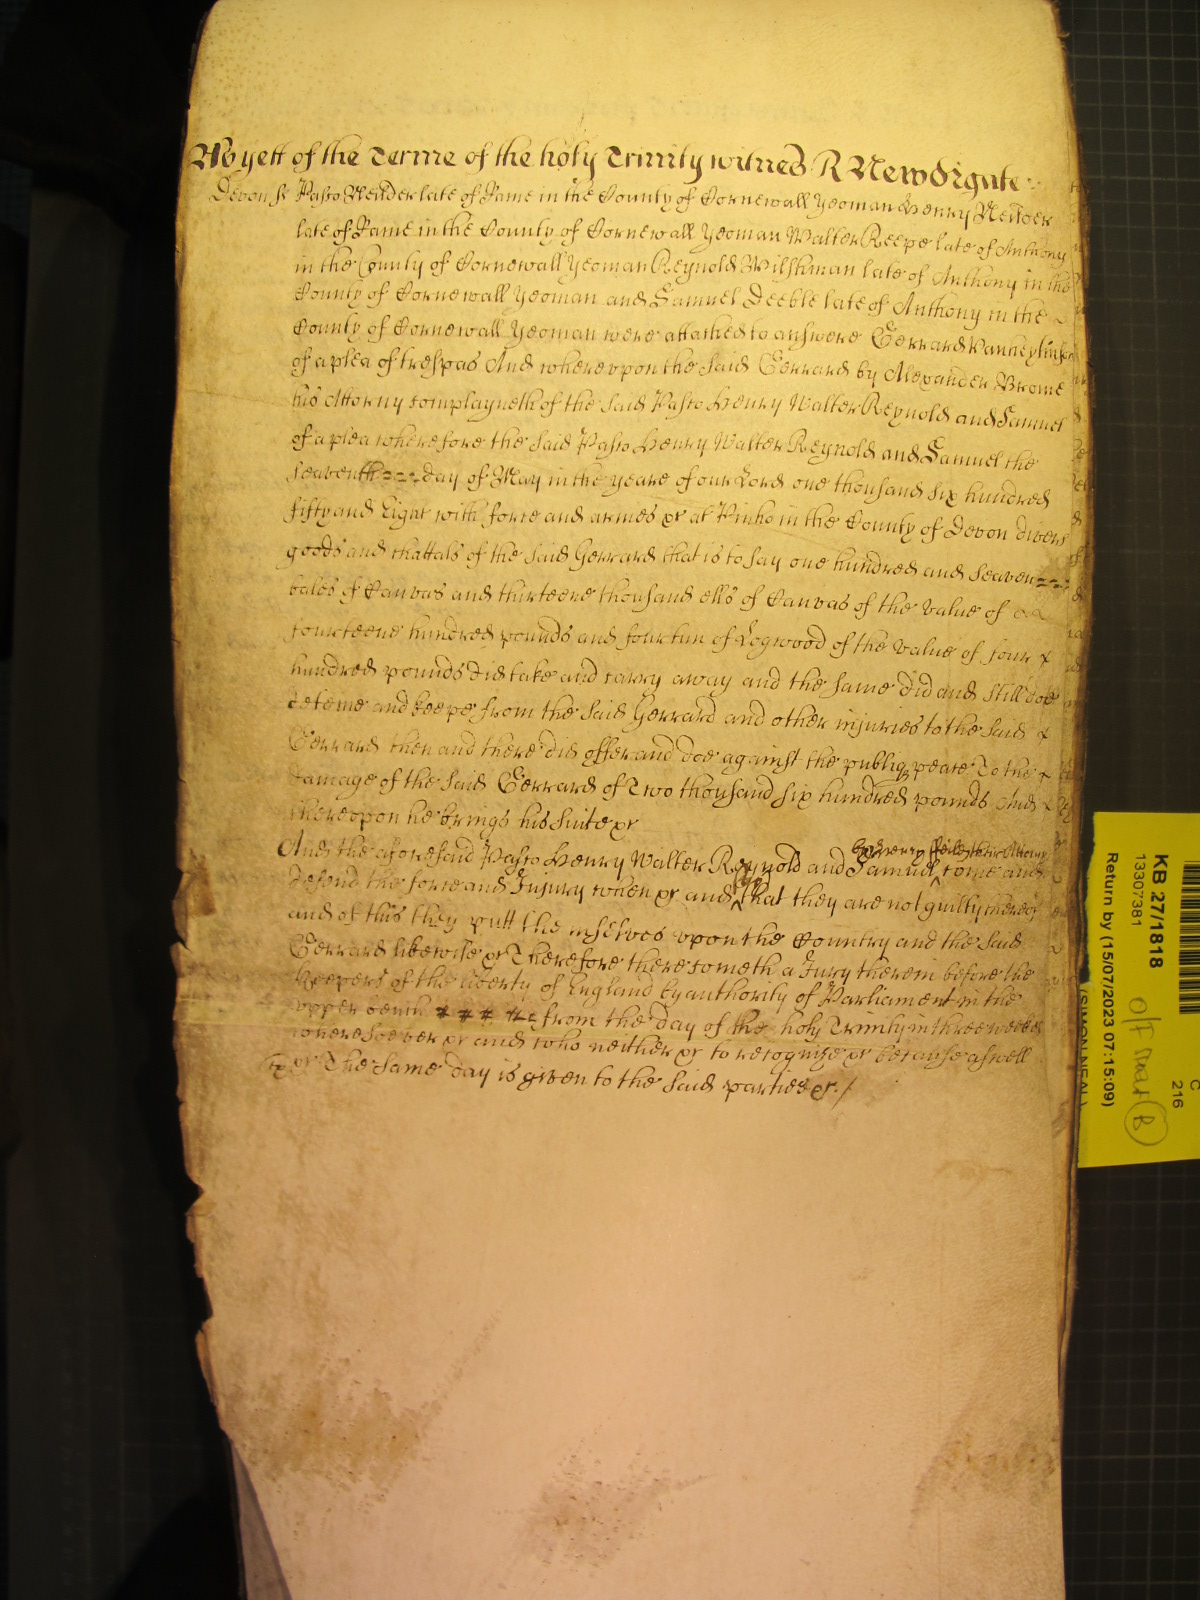 Wyett of the Terme of the holy Trinity witnes R Newdigate
Devon ss Pasco Neilder late of Rame in the County of Cornewall yeoman Henry Neilder
late of Rame in the County of Cornewall yeoman Walter Reepe late of Anthony
in the County of Cornewall yeoman Reynold Wilshman late of Anthony in the
County of Cornewall yeoman and Samuel Deeble late of Anthony in the
County of Cornewall yeoman were attached to answere Gerrard
of a plea of trespas And wherevpon the said Gerrard by Alexander Brome
his Attorny complayneth of the said Pasco Henry Walter Reynold and Samuel
of a plea wherefore the said Pasco Henry Walter Reynold and Samuel the
seaventh === day of May in the yeare of our Lord one thousand six hundred
fifty and Eight with force and armes &c at Pinho in the County of Devon divers
goods and chattals of the said Gerrard that is to say one hundred and seaven ===
bales of Canvas and thirteene thousand ells of Canvas of the value of
fourteene hundred pounds and four tun of Logwood of the value of four
hundred pounds did take and carry away and the same did and still doe
deteine and keepe from the said Gerrard and other injuries to the said
Gerrard then and there did offer and doe against the publiq peace To the
damage of the said Gerrard of Two thousand six hundred pounds And
thereopon he brings his suite &c
by Henry their Attorny
And the aforesaid Pasco Henry Walter Reynold and Samuel come and
defend the force and Injury when &c and say that they are not guilty thereof
and of this they putt themselves vpon the Country and the said
Gerrard likewise &c Therefore there cometh a Jury therein before the
keepers of the liberty of England by authority of Parliament in the
vpper bench from the day of the holy Trinity in three weekes
wheresoever &c and who neither &c to recognize &c because aswell
&c The same day is given to the said parties &c /
KB 27/1818
13307381
Return by (15/07/2023 07:15:09)
(SIMON NEAL)
C
216